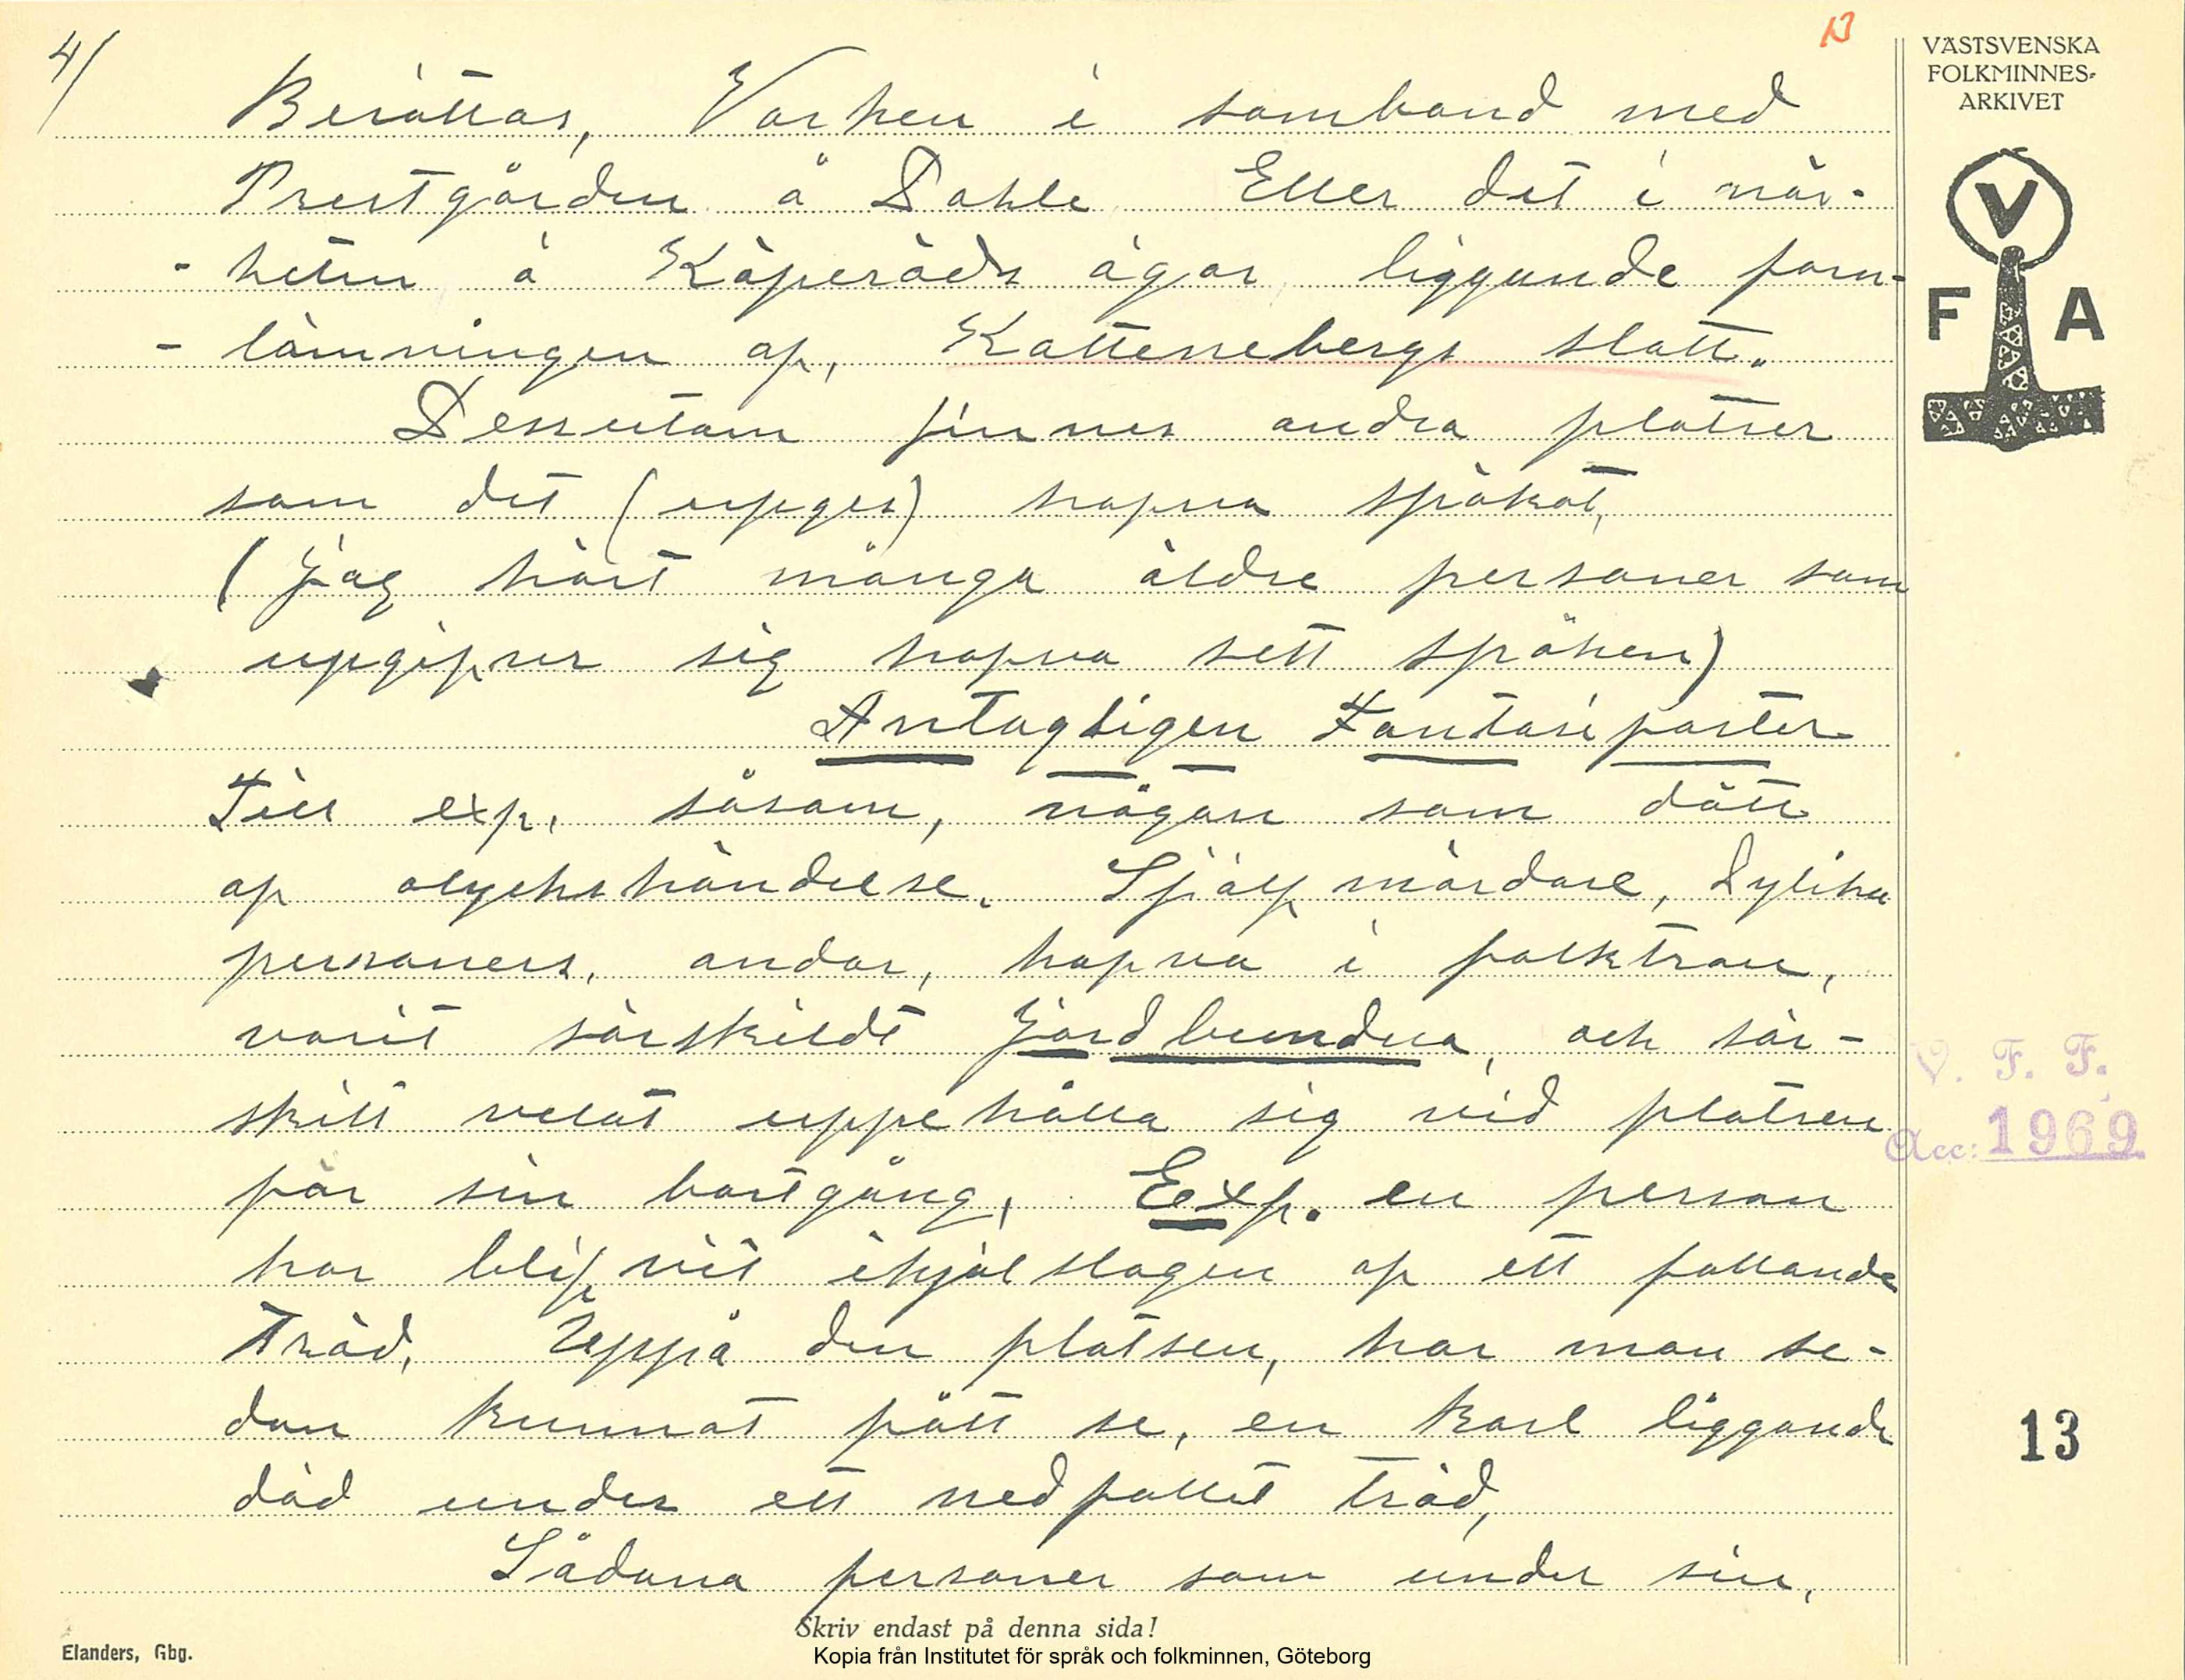 4/
13
Berättas, Varken i samband med
Prestgården å Dahle Eller det i när-
- heten å Köperöds ägor liggande forn-
- lämningen af, Kattenebergs slott.
Dessutom finnes andra platser
som det (upges) hafva spökat,
(Jag hört många äldre personer som
upgifver sig hafva sett spöken)
Antagligen Fantasifoster
Till exp. såsom, någon som dött
af olyckshändelse. Sjelfmördare, Dylika
personers, andar, hafva i folktron,
varit särskildt Jordbundna, och sär-
skilt velat uppehålla sig vid platsen
för sin bortgång, Exp. en person
har blifvit ihjälslagen af ett fallande
Träd, Uppå den platsen, har man se-
dan kunnat fått se, en karl liggande
död under ett nedfallet träd,
Sådana personer som under sin,
Skriv endast på denna sida!
Elanders, Gbg.
Kopia från Institutet för språk och folkminnen, Göteborg
VÄSTSVENSKA
FOLKMINNES-
ARKIVET
V
F A
V. F. F.
Acc: 1969
13